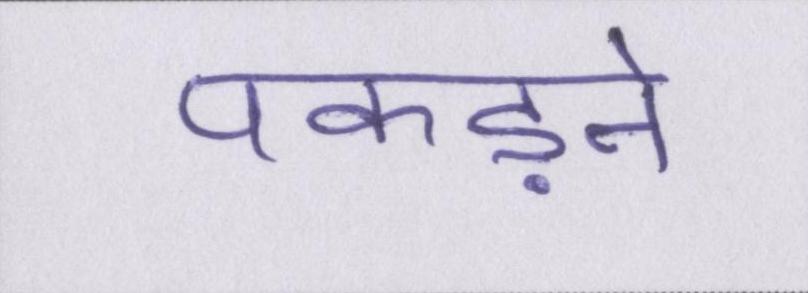 पकड़ने